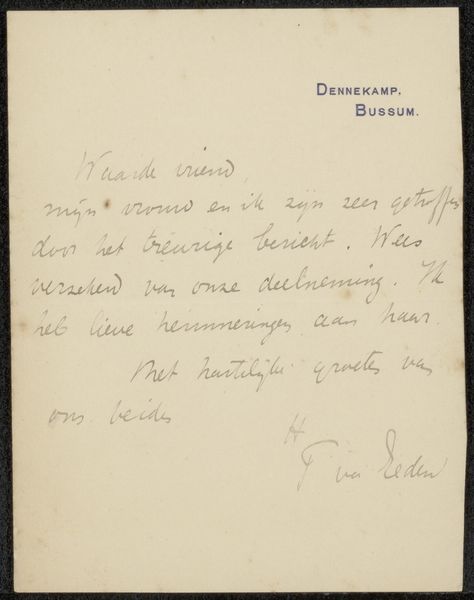 DENNEKAMP.
BUSSUM.
Waarde vriend,
mijn vrouw en ik zijn zeer getroffen
door het treurige bericht. Wees
verzekerd van onze deelneming. Ik
heb lieve herinneringen aan haar.
Met hartelijke groeten van
ons beiden
F van Eeden